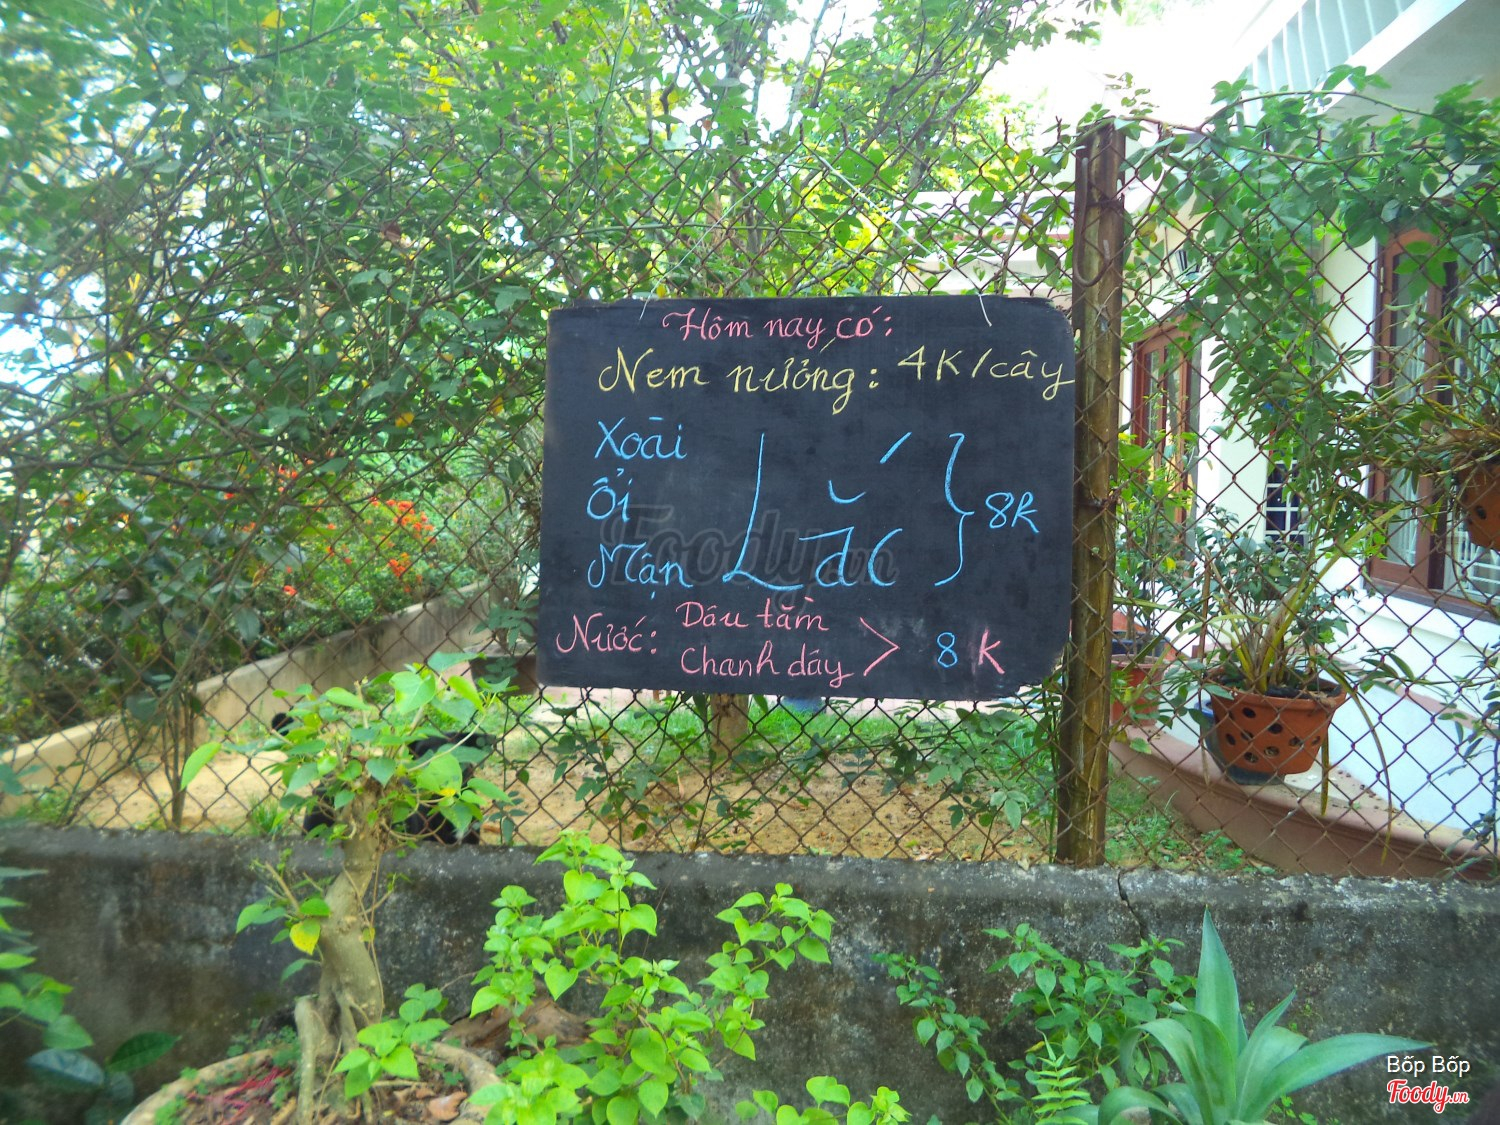 Hôm nay có:
Nem nướng: 4K/cây
Xoài
Ổi
Mận
Lắc } 8K
Nước: Dâu tằm
Chanh dây > 8K
Foody.vn
Bốp Bốp
Foody.vn